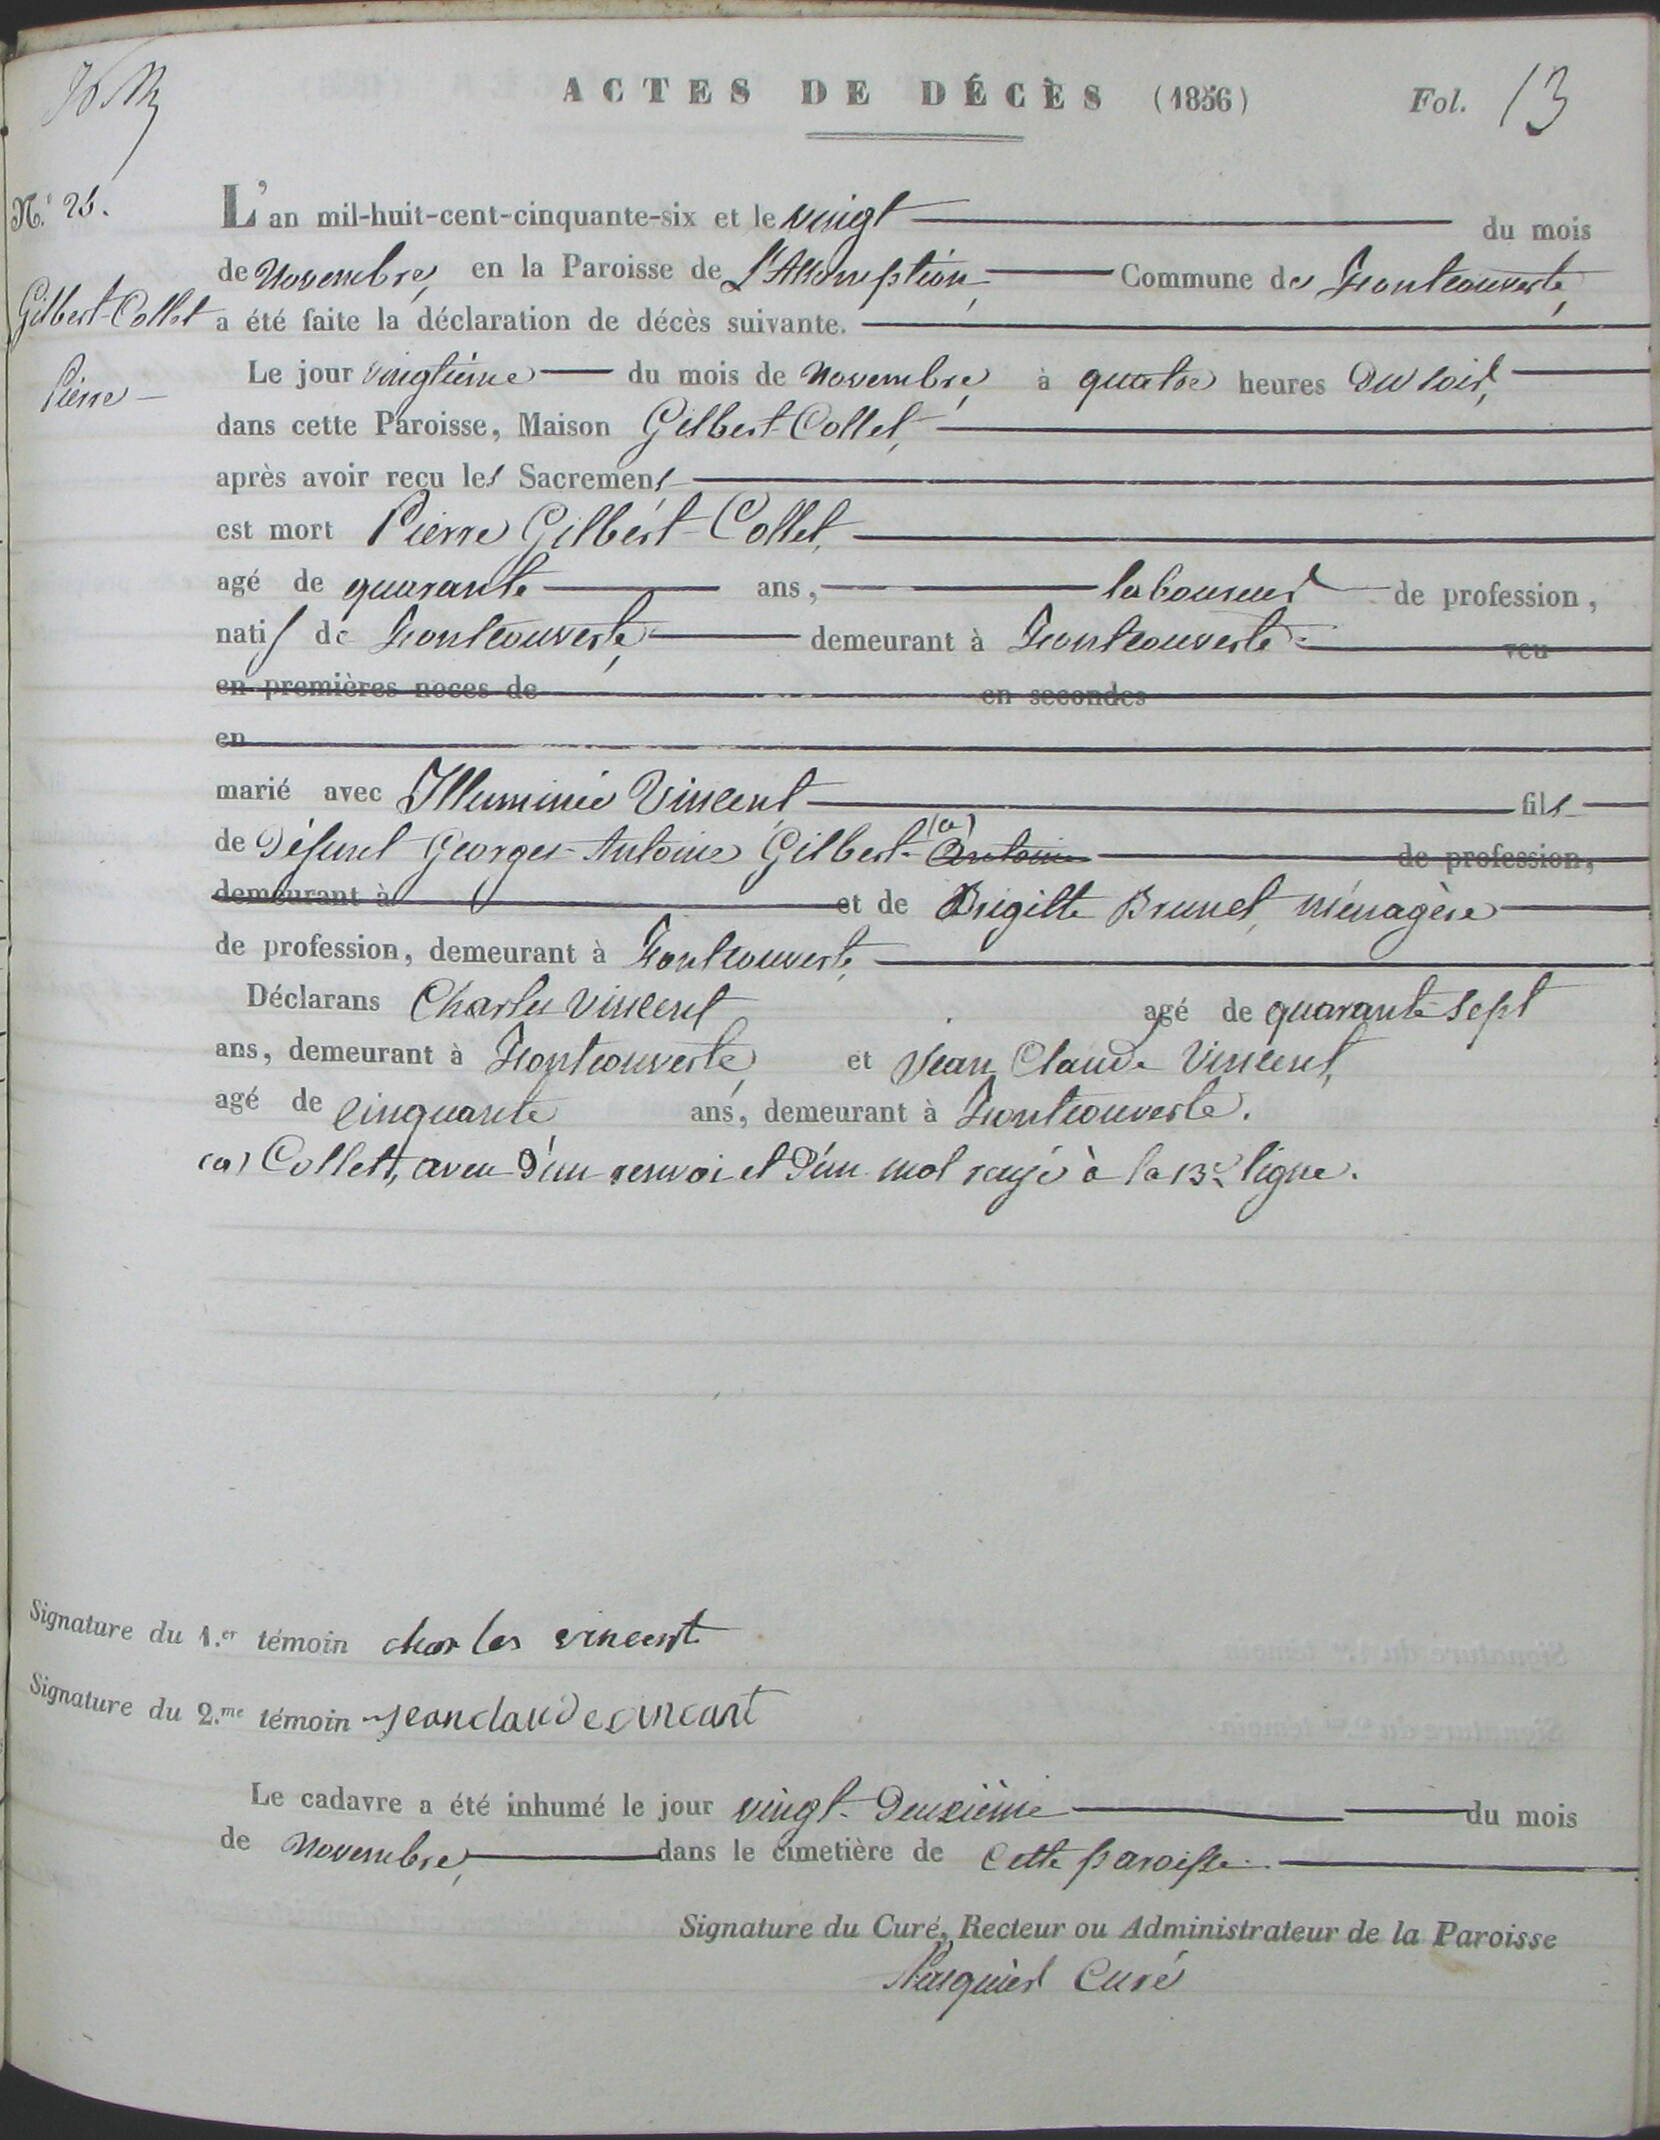 ACTES DE DÉCÈS (1856) Fol. 13
N.° 25.
L'an mil-huit-cent-cinquante-six et le vingt du mois
de Novembre, en la Paroisse de L'Assomption, Commune de Fontcouverte,
Gilbert-Collet
a été faite la déclaration de décès suivante.
Pierre
Le jour vingtième du mois de Novembre, à quatre heures du soir,
dans cette Paroisse, Maison Gilbert-Collet,
après avoir reçu les Sacremens
est mort Pierre Gilbert-Collet,
agé de quarante ans, laboureur de profession,
natif de Fontcouverte, demeurant à Fontcouverte. veu
en premières noces de en secondes
en
marié avec Illuminée Vincent, fils
de Défunt Georges-Antoine Gilbert-(a) Antoine de profession,
demeurant à et de Brigitte Brunet, ménagère
de profession, demeurant à Fontcouverte,
Déclarans Charles Vincent agé de quarante-sept
ans, demeurant à Fontcouverte, et Jean Claude Vincent,
agé de cinquante ans, demeurant à Fontcouverte.
(a) Collet, aveu d'un renvoi et d'un mot rayé à la 13e ligne.
Signature du 1.er témoin charles vincent
Signature du 2.me témoin jeanclaudevincant
Le cadavre a été inhumé le jour vingt-deuxième du mois
de Novembre, dans le cimetière de cette paroisse.
Signature du Curé, Recteur ou Administrateur de la Paroisse
Curé